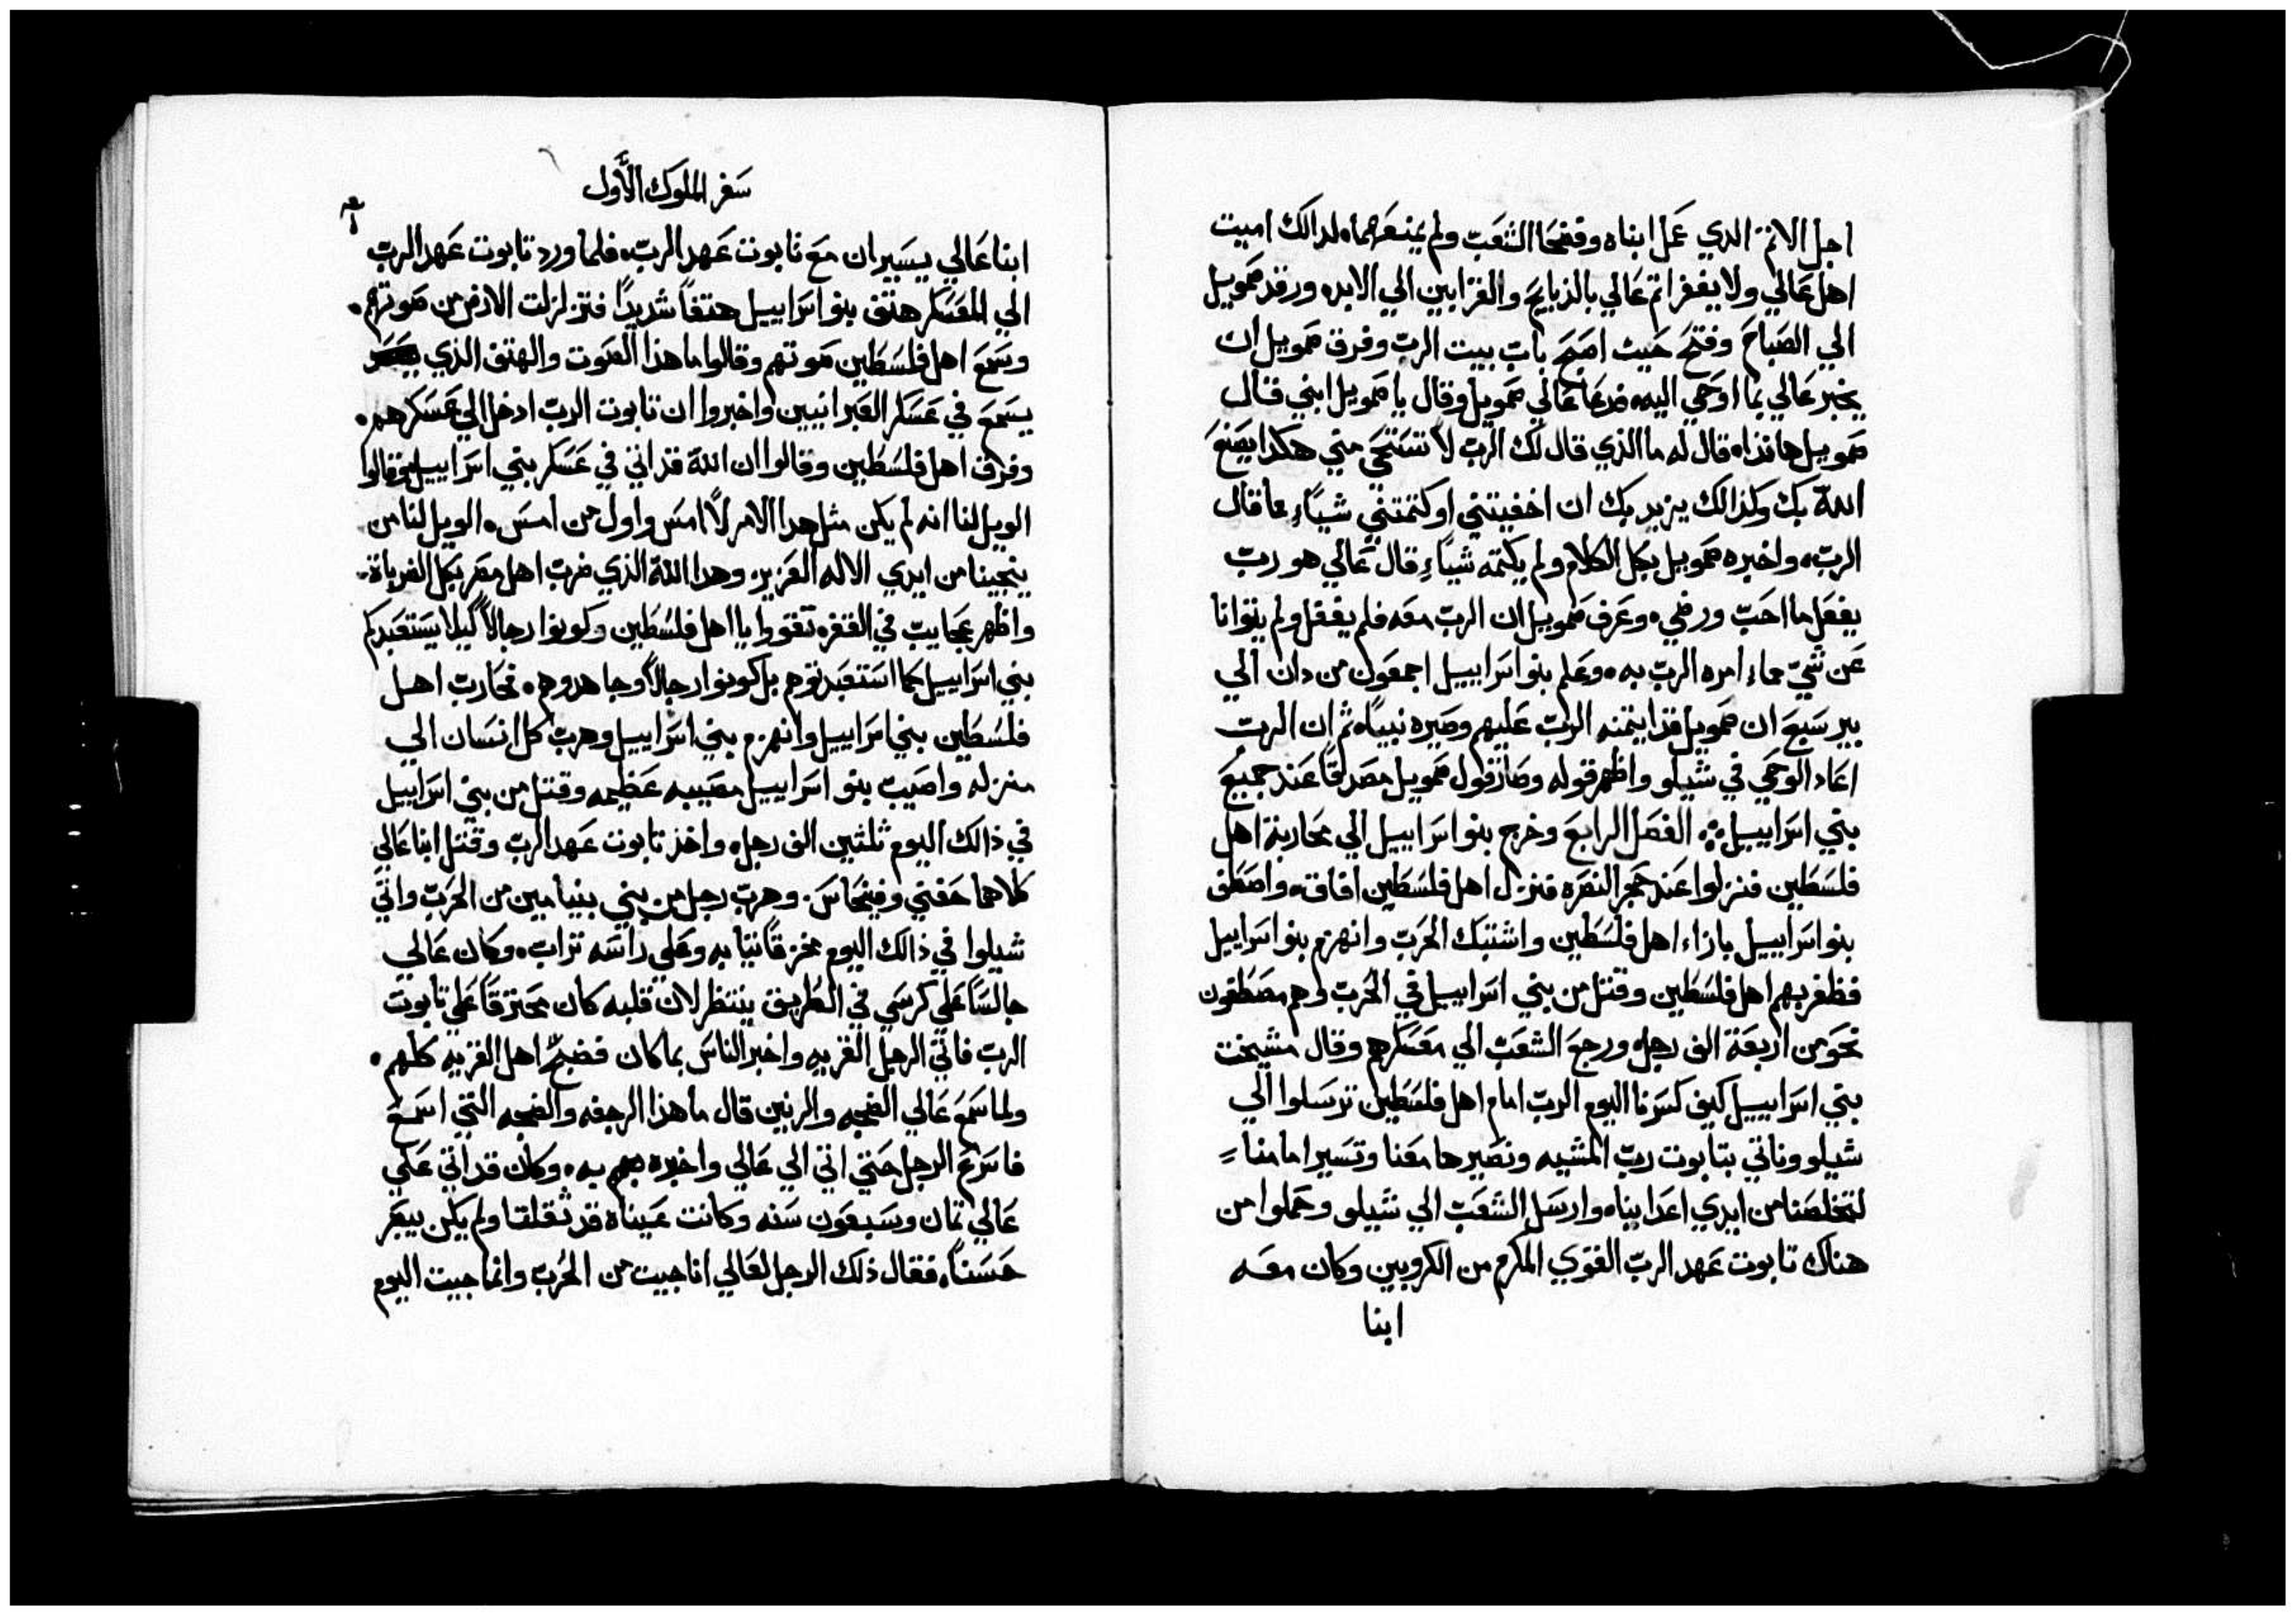 اجل الاثم الدي عمل ابناه وفضحا الشعب ولم يمنعهما. لدالك اميت
اهل عالي ولا يغفر اثم عالي بالذبايح والقرابين الي الابد. ورقد صمويل
الي الصباح وفتح حيث اصبح باب بيت الرب وفرق صمويل ان
يخبر عالي بما اوحي اليه. فدعا عالي صمويل وقال يا صمويل ابني قال
صمويل هانذا. قال له ما الذي قال لك الرب لا تستحي مني هكدا يصنع
الله بك وكذالك يزيد بك ان اخفيتني او كتمتني شياءً مما قال
الرب. واخبره صمويل بكل الكلام ولم يكتمه شياءً قال عالي هو رب
يفعل ما احب ورضي. وعرف صمويل ان الرب معه فلم يغفل ولم يتوانا
عن شيّ مماء امره الرب به. وعلم بنو اسراييل اجمعون من دان الي
بير سبع ان صمويل قد ايتمنه الرب عليهم وصيره نبياً. ثم ان الرب
اعاد الوحي في شيلو واظهر قوله وصار قول صمويل مصدقاً عند جميع
بني اسراييل ܀ الفصل الرابع وخرج بنو اسراييل الي محاربة اهل
فلسطين فنزلوا عند حجر النصره فنزل اهل فلسطين افاق. واصطف
بنو اسراييل بازاء اهل فلسطين واشتبك الحرب وانهزم بنو اسراييل
فظفر بهم اهل فلسطين وقتل من بني اسراييل في الحرب وهم مصطفون
نحو من اربعة الف رجل. ورجع الشعب الي معسكرهم وقال مشيخت
بني اسراييل كيف كسرنا اليوم الرب امام اهل فلسطين ترسلوا الي
شيلو وناتي بتابوت رب المشيه ونصيرها معنا وتسير امامنا
لتخلصنا من ايدي اعداينا. وارسل الشعب الي شيلو وحملوا من
هناك تابوت عهد الرب القوي المكرم من الكروبين وكان معه
ابنا
سفر الملوك الأول
ابنا عالي يسيران مع تابوت عهد الرب. فلما ورد تابوت عهد الرب
الي المعسكر هتف بنو اسراييل هتفاً شديداً فتزلزلت الارض من صوتهم.
وسمع اهل فلسطين صوتهم وقالوا ما هذا الصوت والهتف الذي
يسمع في عسكر العبرانيين واخبروا ان تابوت الرب ادخل الي عسكرهم.
وفرق اهل فلسطين وقالوا ان الله قد اتي في عسكر بني اسراييل وقالوا
الويل لنا انه لم يكن مثل هدا الامر لا امس واول من امس. الويل لنا من
ينجينا من ايدي الاله العزيز. وهدا الله الذي ضرب اهل مصر بكل الضرباة.
واظهر عجايب في القفر. تقووا يا اهل فلسطين وكونوا رجالاً كيلا يستعبدكم
بني اسراييل كما استعبدتوهم بل كونوا رجالاً وجاهدوهم. فحارب اهل
فلسطين بني اسراييل وانهزم بني اسراييل وهرب كل انسان الي
منزله واصيب بنو اسراييل مصيبه عظيمه وقتل من بني اسراييل
في ذالك اليوم ثلثين الف رجل. واخذ تابوت عهد الرب وقتل ابنا عالي
كلاهما حفني وفينحاس. وهرب رجل من بني بنيامين من الحرب واتي
شيلوا في ذالك اليوم مخزقاً تيابه وعلي راسه تراب. وكان عالي
جالساً علي كرسي في الطريق ينتظر لان قلبه كان محترقاً علي تابوت
الرب فاتي الرجل القريه واخبر الناس بما كان فضج اهل القريه كلهم.
ولما سمع عالي الضجه والرنين قال ما هذا الرجفه والضجه التي اسمع
فاسرع الرجل حتي اتي الي عالي واخبره به. وكان قد اتي علي
عالي تمان وسبعون سنه وكانت عيناه قد ثقلتا ولم يكن يبصر
حسناً. فقال ذلك الرجل لعالي انا جيت من الحرب وانما جيت اليوم